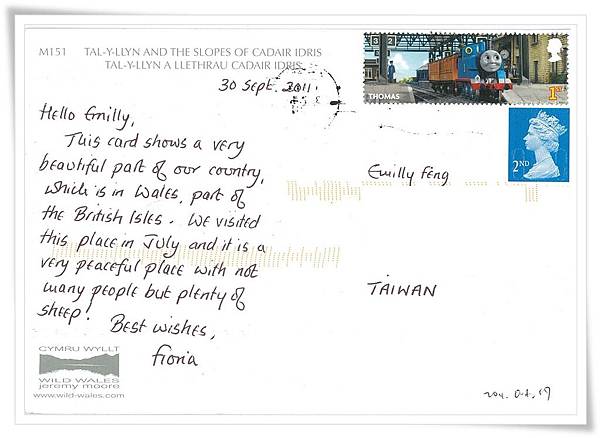 M151 TAL-Y-LLYN AND THE SLOPES OF CADAIR IDRIS
TAL-Y-LLYN A LLETHRAU CADAIR IDRIS
30 Sept. 2011
Hello Emilly,
This card shows a very
beautiful part of our country,
which is in Wales, part of
the British Isles. We visited
this place in July and it is a
very peaceful place with not
many people but plenty of
sheep!
Best wishes,
Fiona
CYMRU WYLLT
WILD WALES
jeremy moore
www.wild-wales.com
THOMAS
1ST
2ND
Emilly Feng
TAIWAN